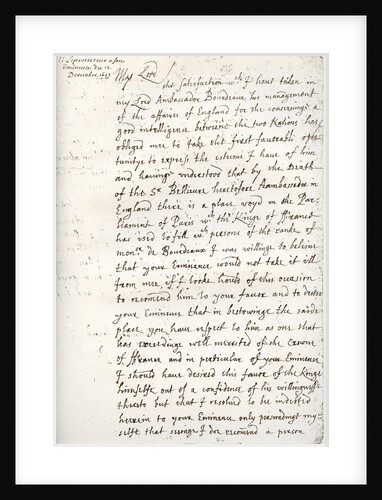 Eminence du 12
Decembre 1657
My Lord
the Satisfaction wch I have taken in
my Lord Ambassador Bourdeaux his management
of the affaires of England for the conserving a
good intelligence betweene the two Nations has
obliged mee to take the first favorable oppor
tunitye to express the esteeme I have of him
and haveing understood that by the Death
of the Sr Bellieure heeretofore Ambassador in
England there is a place voyd in the Par
liament of Paris wch the Kinge of ffrance
has used to fill wth persons of the ranke of
monsr de Bourdeaux I was willinge to beleeve
that your Eminence would not take it ill
from mee if I tooke hould of this occasion
to recomend him to your favor and to desire
your Eminence that in bestowinge the saide
place you have respect to him as one that
has exceedinge well merited of the Crowne
of ffrance and in particular of your Eminence
I should have desired this favor of the Kinge
himselfe out of a confidence of his willingness
thereto but that I resolved to be indebted
herein to your Eminence only perswadinge my
selfe that seeinge I doe recomend a person